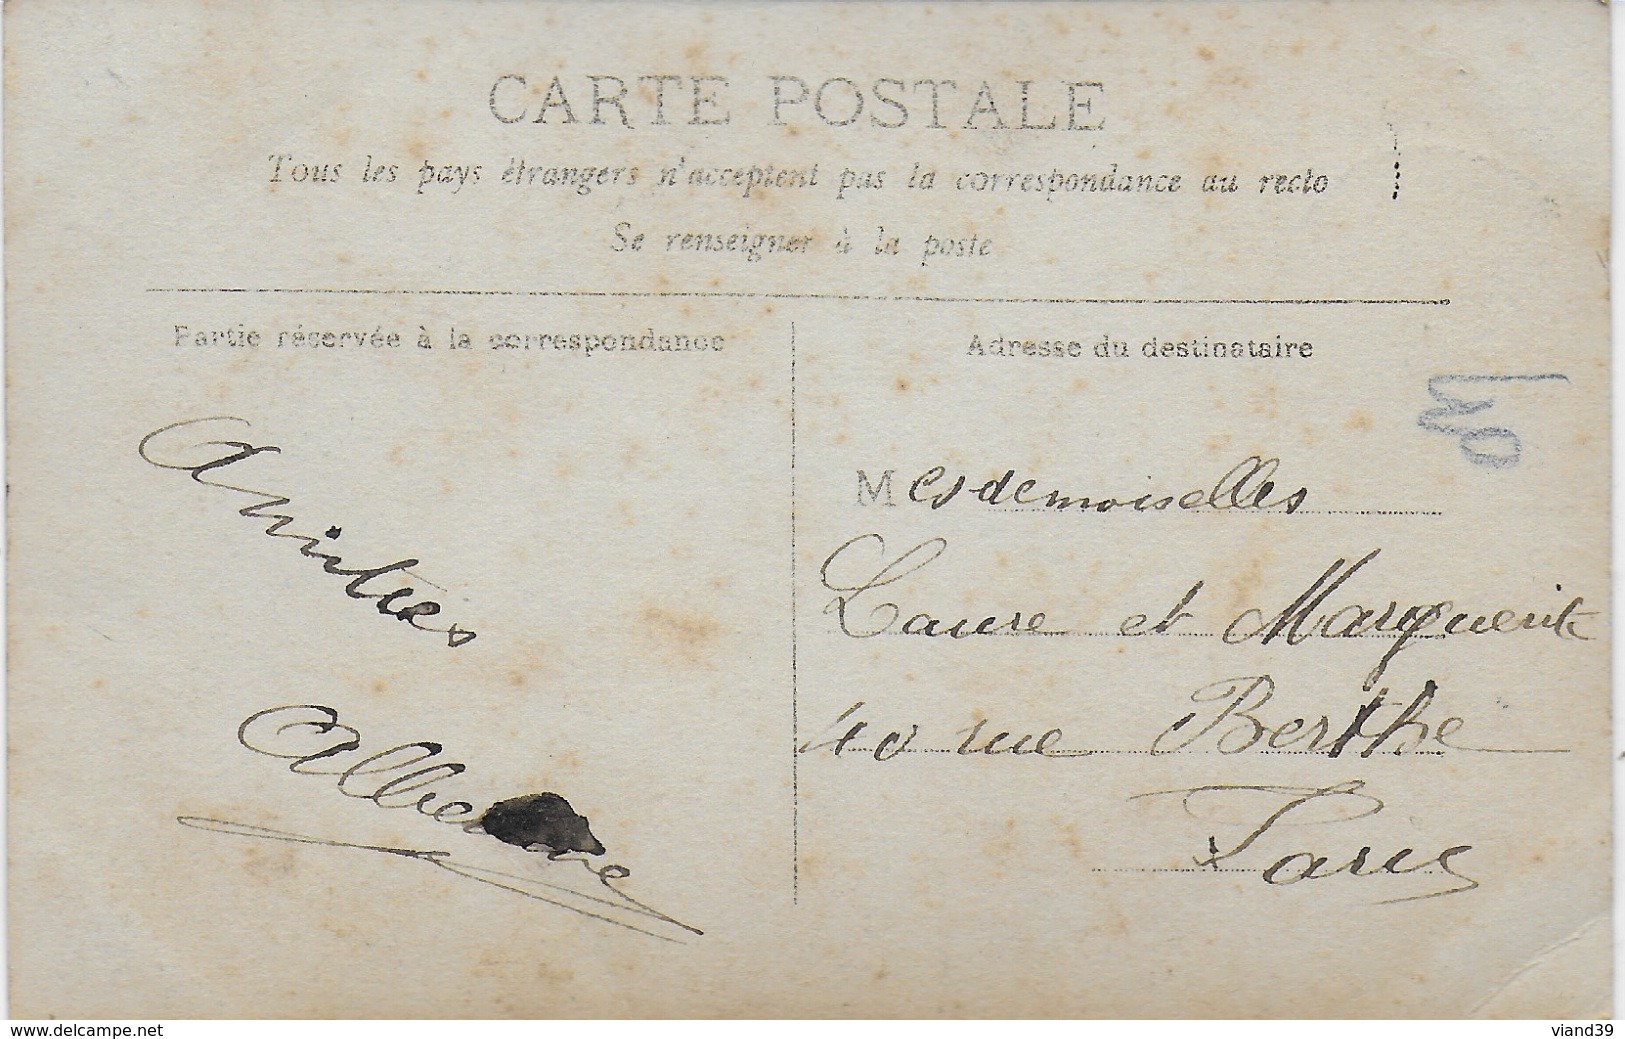 CARTE POSTALE
Tous les pays étrangers n'acceptent pas la correspondance au recto
Se renseigner à la poste
Partie réservée à la correspondance
Adresse du destinataire
Amitiés
Mesdemoiselles
Laure et Marguerite
40 rue Berthe
Paris
www.delcampe.net
viand39